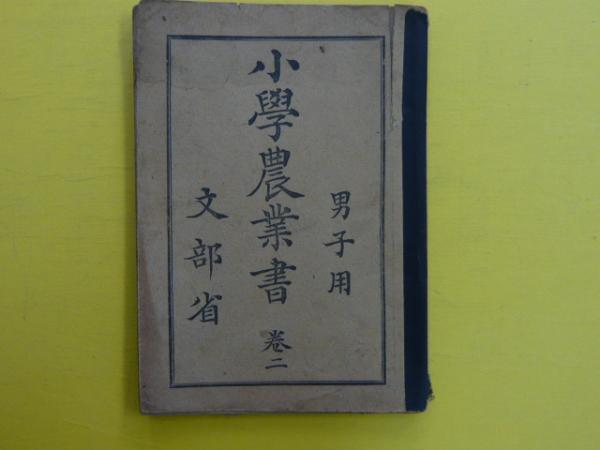 男子用
小學農業書 卷二
文部省